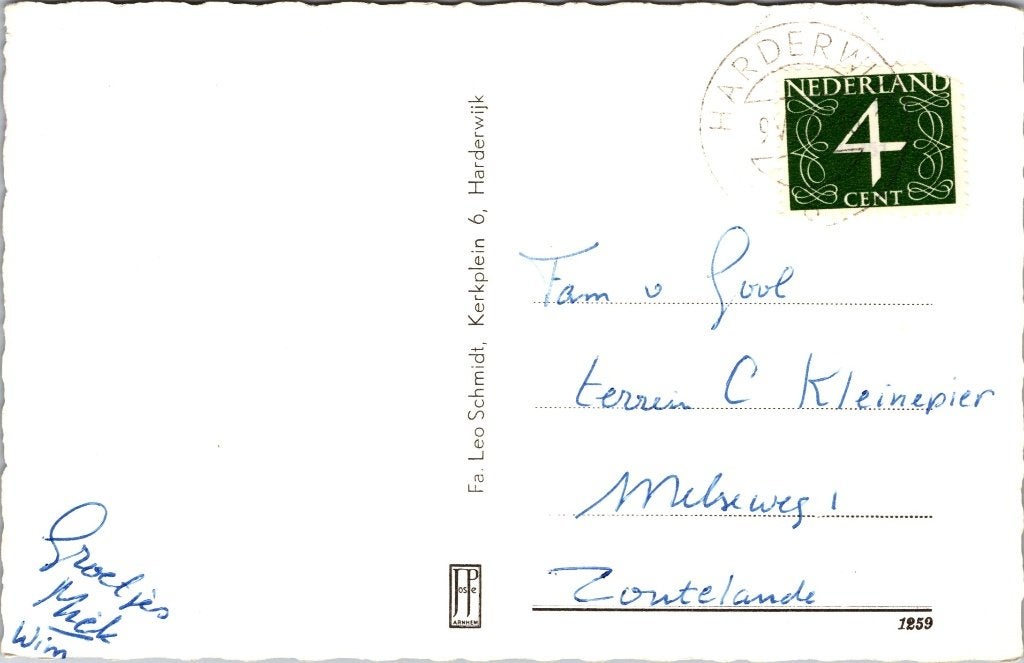 HARDERWI
NEDERLAND
4
CENT
Fam v Gool
terrein C Kleinepier
Melseweg 1
Zoutelande
1259
Fa. Leo Schmidt, Kerkplein 6, Harderwijk
JosPe
ARNHEM
Groetjes
Miek
Wim